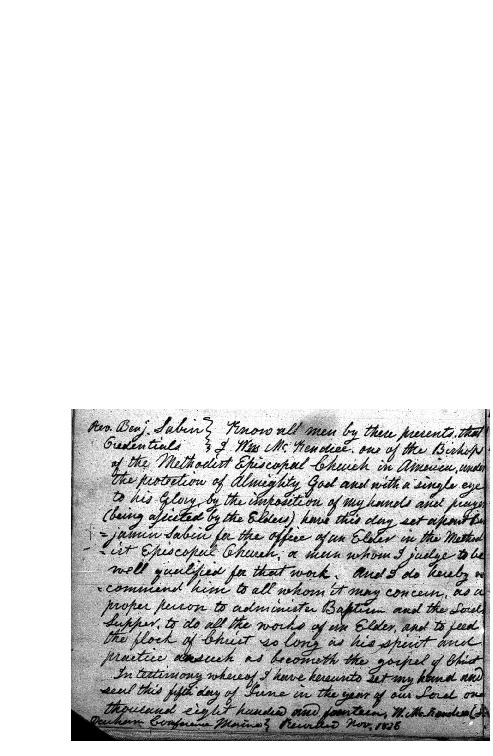 Rev. Benj. Sabin } Know all men by these presents, that
Credentials } I Wm Mc Kendree, one of the Bishops
of the Methodist Episcopal Church in America, under
the protection of Almighty God and with a single eye
to his Glory, by the imposition of my hands and prayer
(being assisted by the Elders) have this day set apart Ben
=jamin Sabin for the office of an Elder in the Method
-ist Episcopal Church, a man whom I judge to be
well qualified for that work. And I do hereby re
=commend him to all whom it may concern, as a
proper person to administer Baptism and the Lord
Supper, to do all the works of an Elder, and to feed
the flock of Christ so long as his spirit and
practice are such as becometh the gospel of Christ
In testimony whereof I have hereunto set my hand and
seal this fifth day of June in the year of our Lord one
thousand eight hundred and fourteen, W. McKendree
Durham Conference Maine } Recorded Nov. 1836